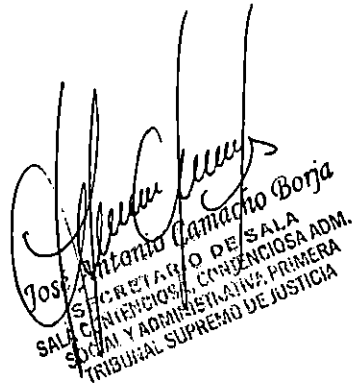 José Antonio Camacho Borja
SECRETARIO DE SALA
SALA CONTENCIOSA, CONTENCIOSA ADM.
SOCIAL Y ADMINISTRATIVA PRIMERA
TRIBUNAL SUPREMO DE JUSTICIA